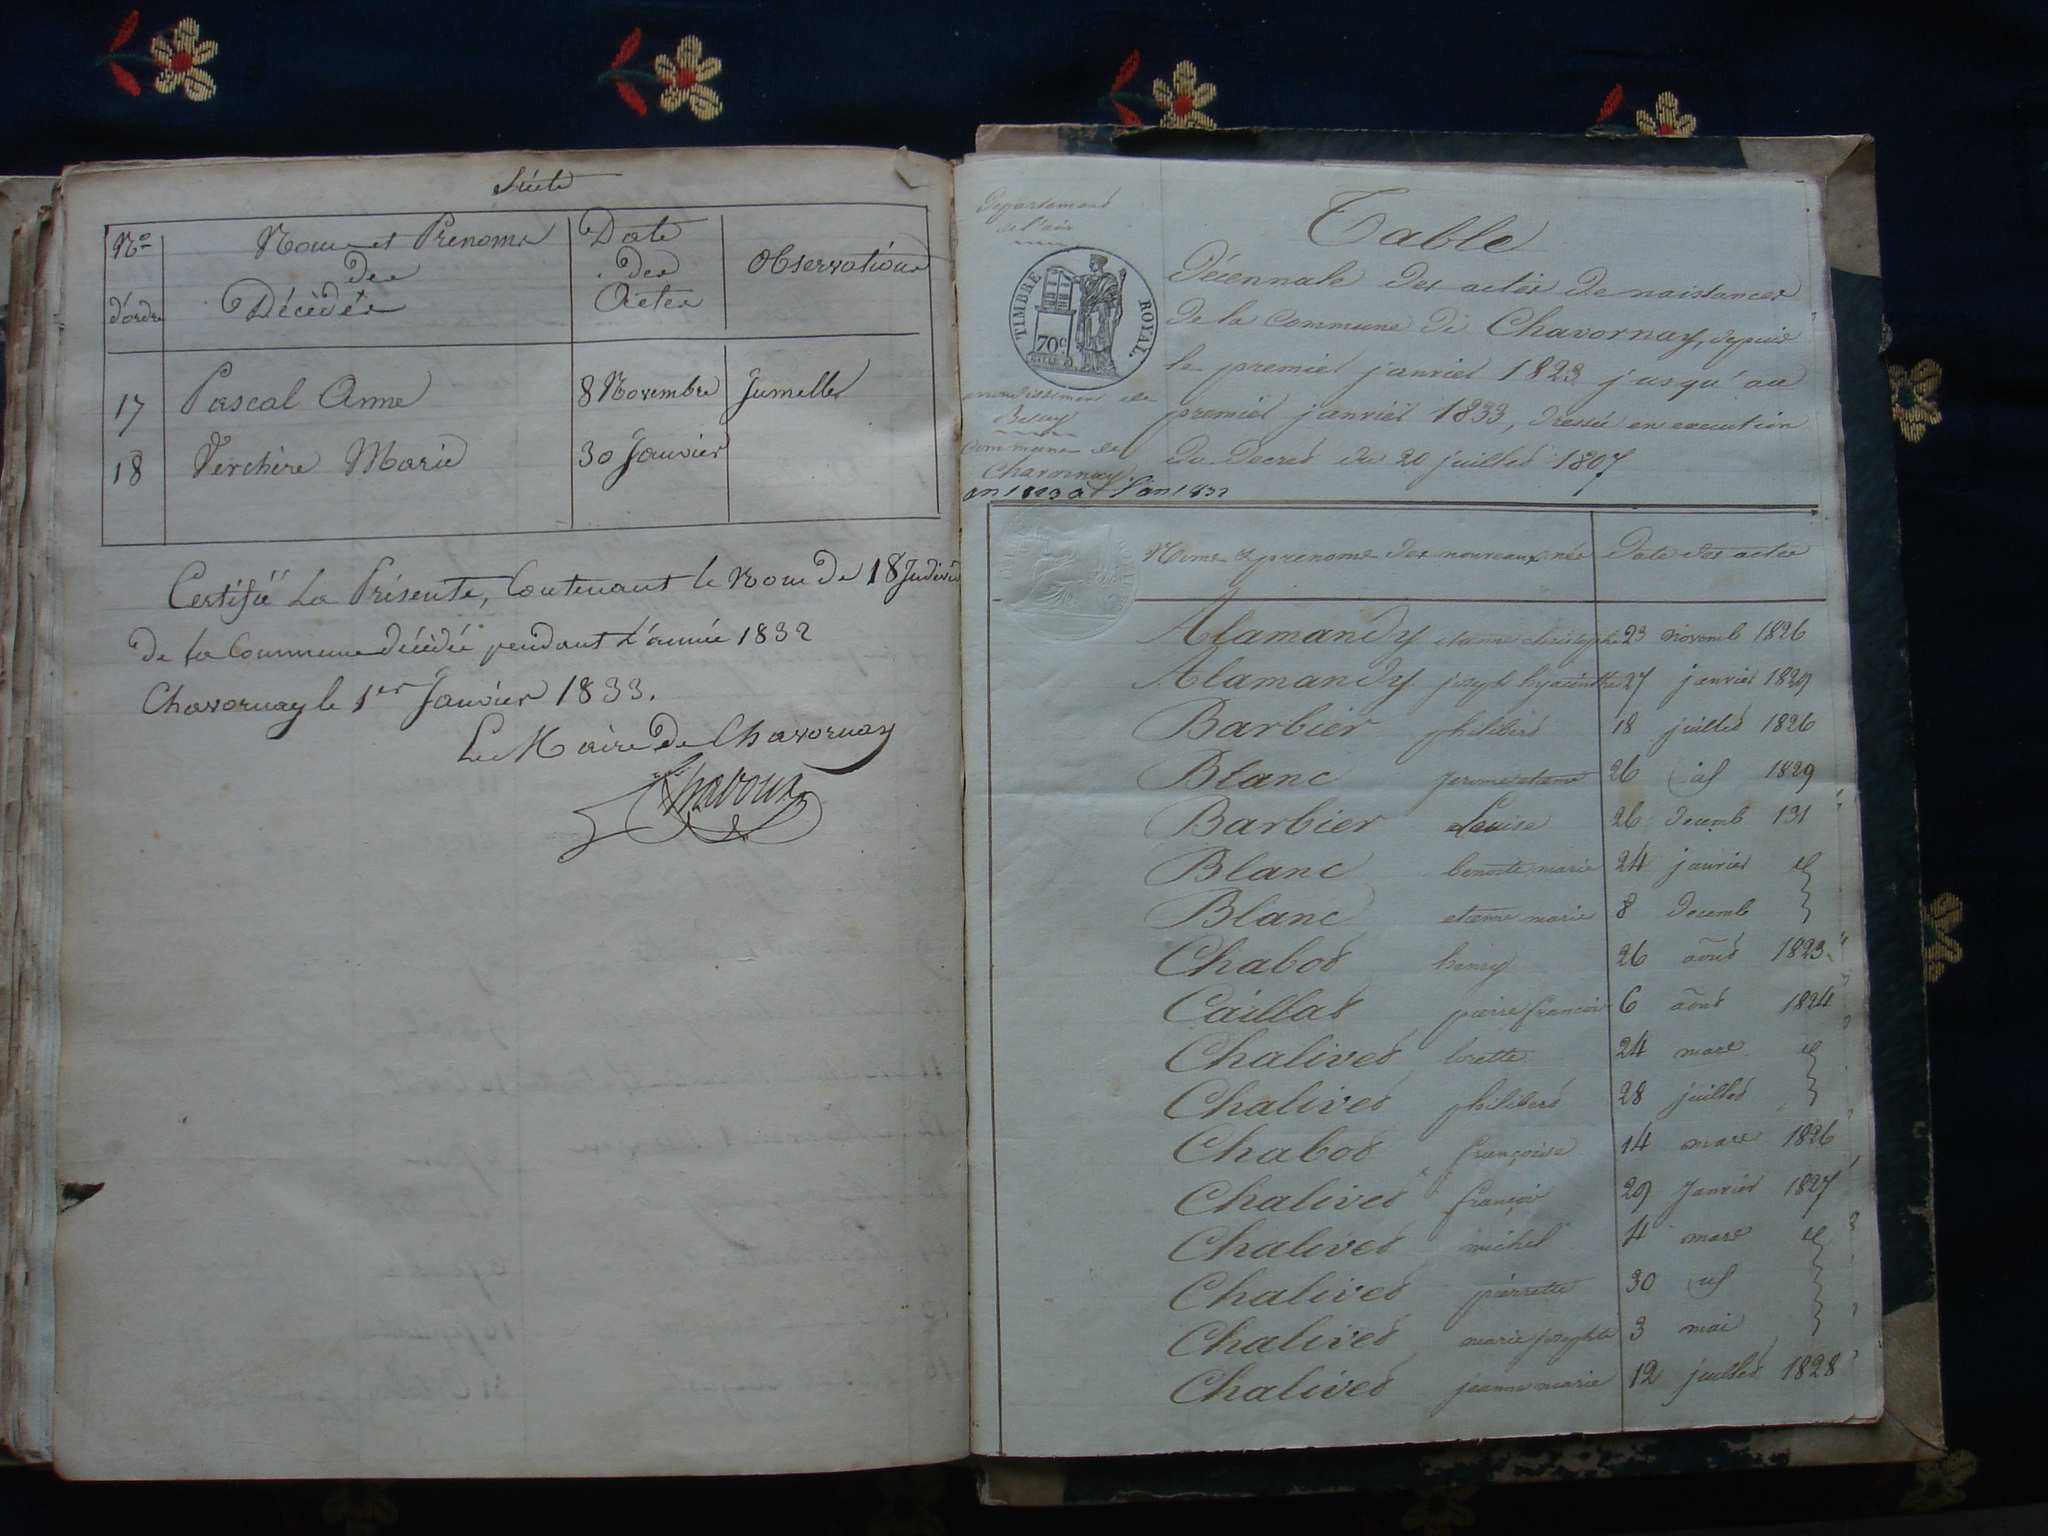 Suite
No d'ordre
Noms et Prénoms
des
Décédés
Date
des
Actes
Observations
17 Pascal Anne 8 Novembre Jumelle
18 Verchère Marie 30 Janvier
Certifié La Présente, Contenant le Nom de 18 Individ
de la Commune décédés pendant L'année 1832
Chavornay le 1er Janvier 1833.
Le Maire de Chavornay
Département
de l'ain
TIMBRE ROYAL
70c
arrondissement de
Belley
Commune de
Chavornay
an 1823 à l'an 1832
Table
Décennale des actes de naissances
de la Commune de Chavornay, depuis
le premier janvier 1823 jusqu'au
premier janvier 1833, dressée en execution
du Decret du 20 juillet 1807
Noms & prenoms des nouveaux nés Date des actes
Alamandy etienne christophe 23 novemb 1826
Alamandy joseph hyacinthe 27 janvier 1829
Barbier philibert 18 juillet 1826
Blanc jerome etienne 26 id 1829
Barbier Louise 26 decemb 131
Blanc benoite marie 24 janvier id
Blanc etienne marie 8 decemb
Chabot henry 26 août 1823
Caillat pierre françois 6 août 1824
Chalivet lorette 24 mars id
Chalivet philibert 28 juillet
Chabot françoise 14 mars 1826
Chalivet françois 29 Janvier 1827
Chalivet michel 4 mars id
Chalivet pierrette 30 id
Chalivet marie josephte 3 mai
Chalivet jeanne marie 12 juillet 1828